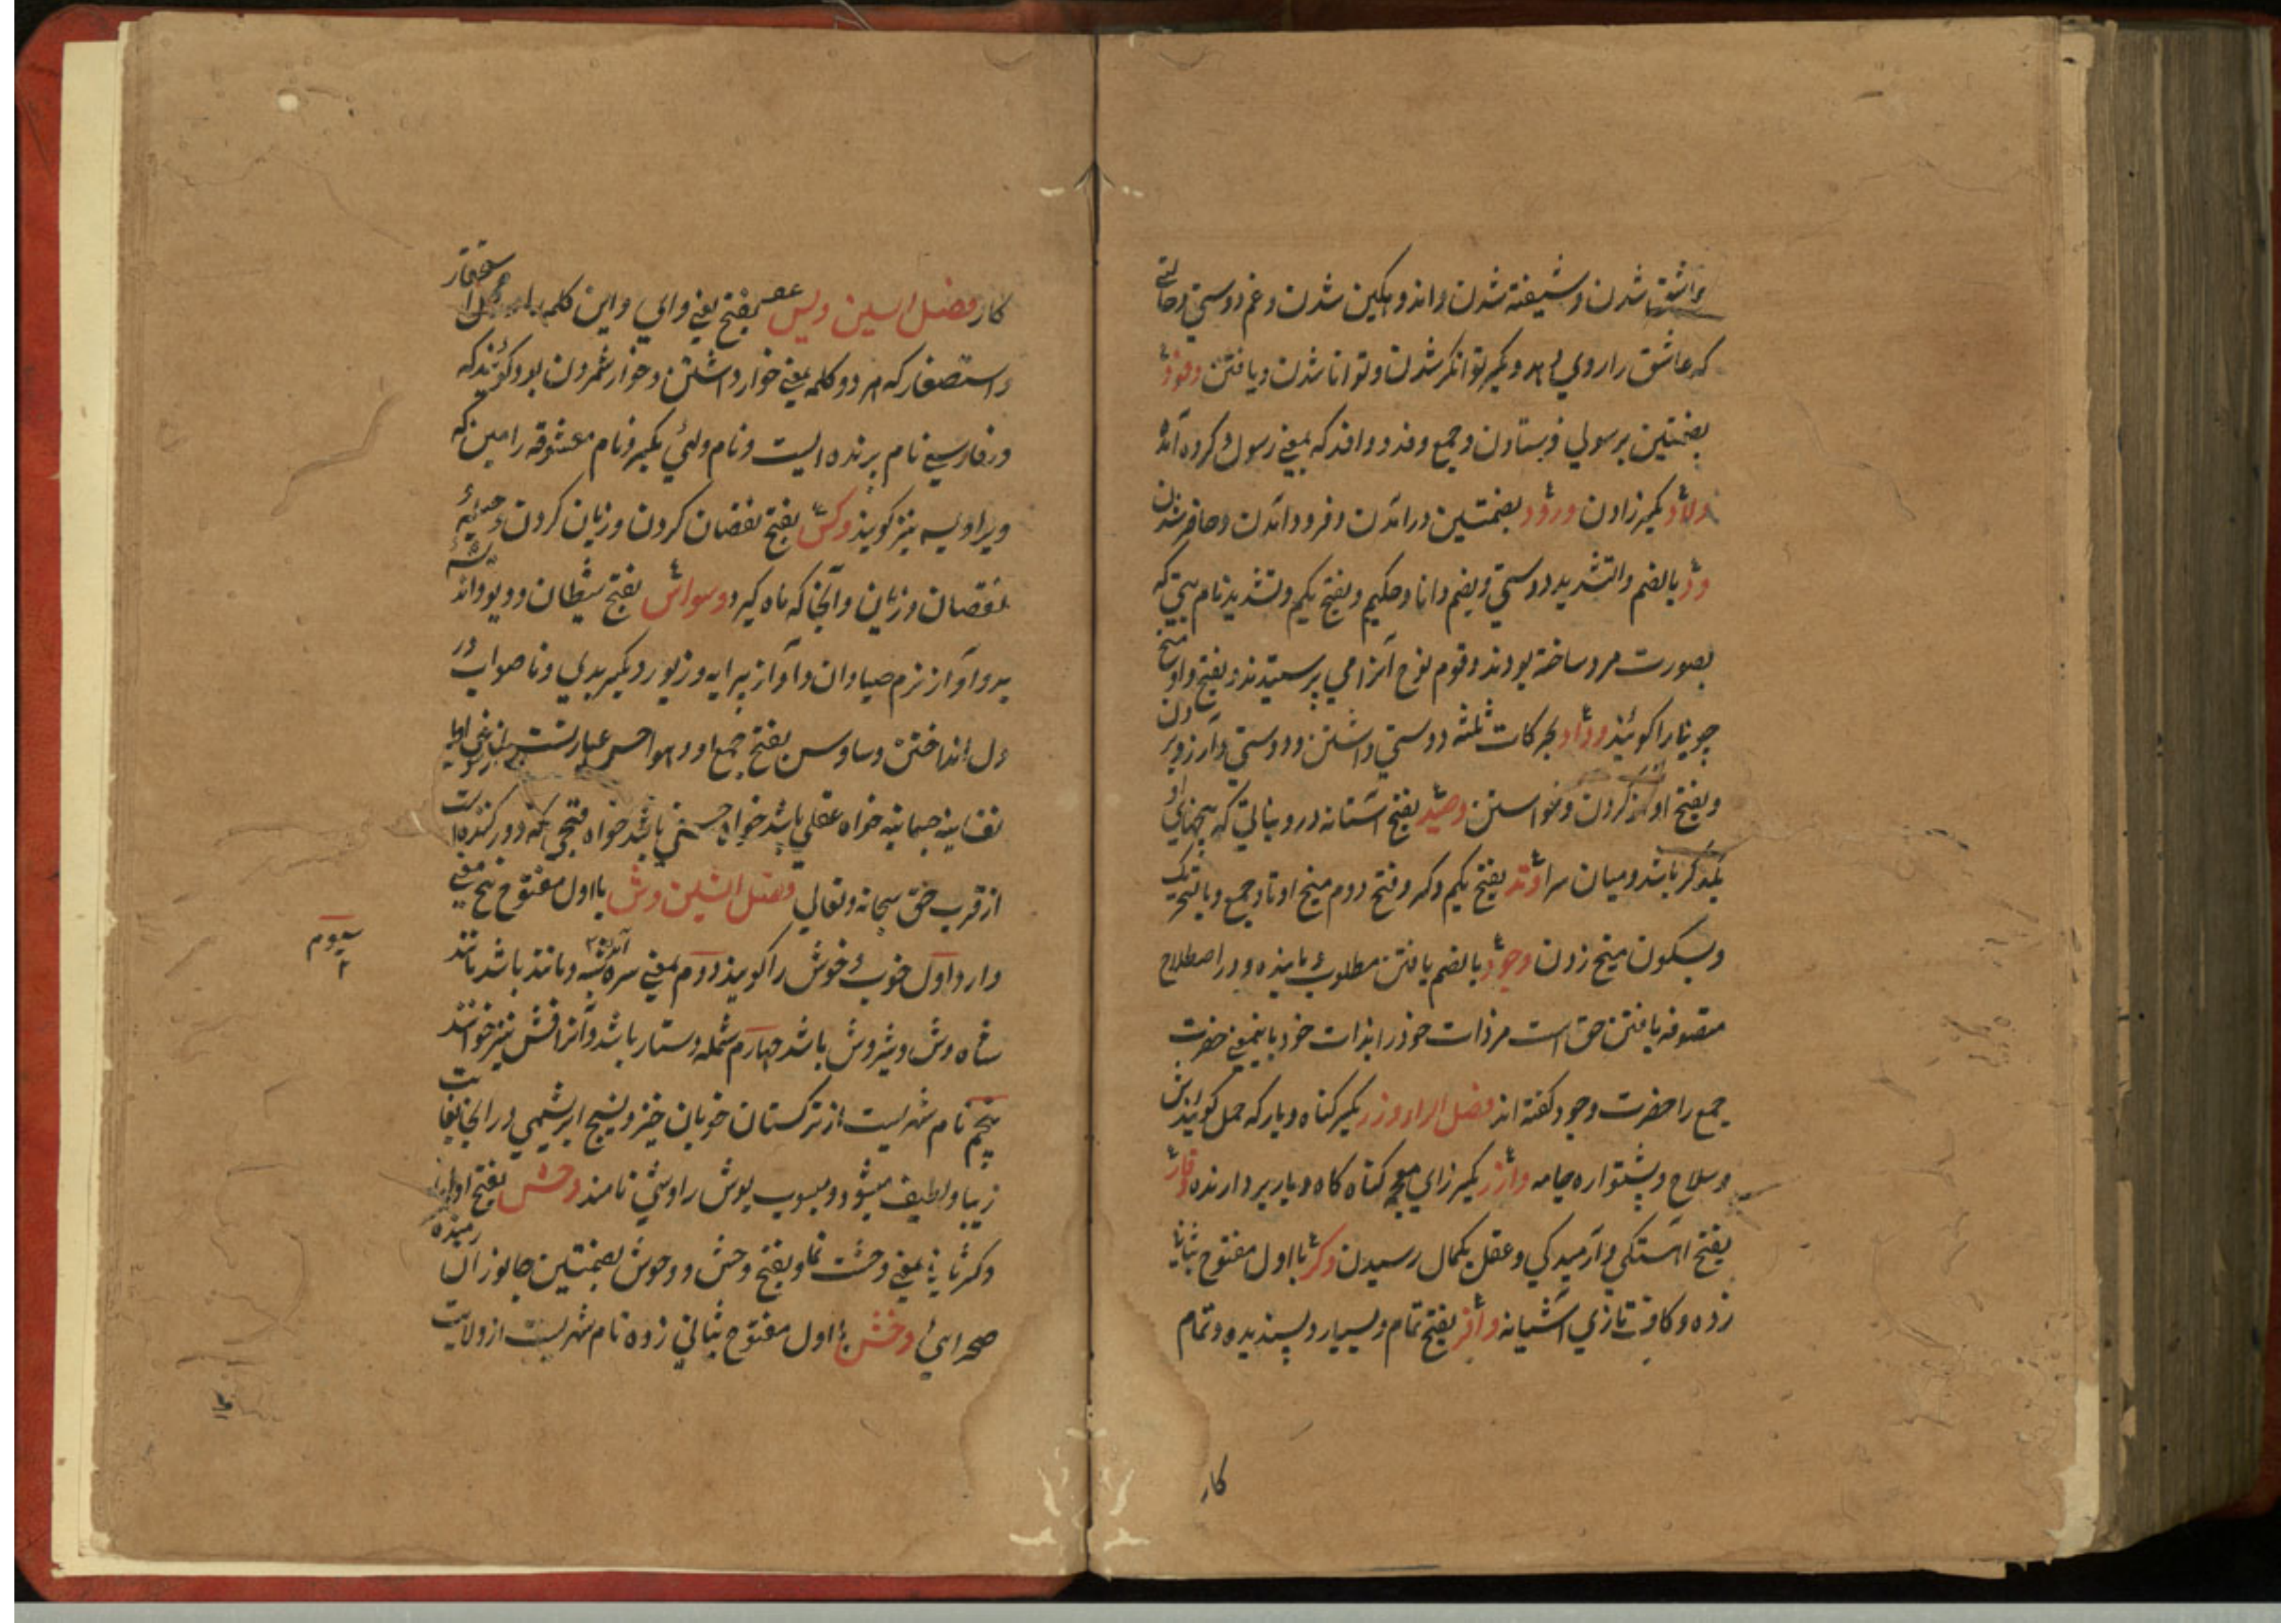 وعاشق شدن و شیفته شدن و اندوهکین شدن و غم دوستی و حالتے
که عاشق را روی دهد و بکسر توانکر شدن و توانا شدن و یافتن وفود
بضمتین برسولی فرستادن و جمع وفد و وافد که بمعنے رسول کرده آمده
ولاد بکسر زادن ورود بضمتین درآمدن و فرود آمدن و حاضر شدن
ود بالضم والتشدید دوستی و بضم دانا و حکیم و بفتح یکم و تشدید نام بتی که
بصورت مرد ساخته بودند و قوم نوح آنرا می پرستیدند و بفتح واو میخ
چوبین را کویند وداد بحرکات ثلثه دوستی داشتن و دوستی و آرزو بردن
و بفتح اول آرزو کردن و خواستن وصید بفتح آستانه در و نباتی که بیخهای او
بیکدیکر باشد و میان سرا وتد بفتح یکم و کسر و فتح دوم میخ اوتاد جمع و بالتحریک
و بسکون میخ زدن وجود بالضم یافتن مطلوب و یابنده و در اصطلاح
متصوفه یافتن حق است مر ذات خود را بذات خود باینمعنے حضرت
جمع را حضرت وجود کفته اند فصل الراء وزر بکسر کناه و بار که حمل کویندش
و سلاح و پشتواره جامه وازر بکسر زای معجمه کناه کاه و بار بردارنده وقار
بفتح آهستکی و آرمیدکی و عقل بکمال رسیدن وکر با اول مفتوح بثانی
زده و کاف تازی آشیانه وافر بفتح تمام و بسیار و پسندیده و تمام
کار
کار فصل السین ویس بفتح یعنے وای و این کلمه استحقار
و استصغار که هر دو کلمه بمعنے خوار داشتن و خوار شمردن بود کویند که
در فارسی نام پرنده ایست و نام ولئی بکسر و نام معشوقه رامین که
ویرا ویسه نیز کویند وکس بفتح نقصان کردن و زیان کردن و
نقصان و زیان و آنجا که ماه کیرد وسواس بفتح شیطان و دیو و اندیشه
بد و آواز نرم صیادان و آواز پیرایه و زیور و بکسر بدی و ناصواب در
دل انداختن وساوس بفتح جمع او و هواجس عبارتست از
نفسانیه جسمانیه خواه عقلی باشد خواه حسنی باشد خواه قبحی که دور کننده است
از قرب حق سبحانه و تعالی فصل الشین وش با اول مفتوح پنج معنے
دارد اول خوب و خوش را کویند دوم بمعنے سره آمده شبه و مانند باشد مانند
شاه وش و شیر وش باشد چهارم شمله دستار باشد و آنرا فش نیز خوانند
پنجم نام شهریست از ترکستان خوبان خیز و نسیج ابریشمی در آنجا بغایت
زیبا و لطیف میشود و منسوب بوش را وشی نامند وحش بفتح اول
و کسر ثانی بمعنے وحشت نما و بفتح وحش و وحوش بضمتین جانوران رمنده
صحرائی وخش با اول مفتوح بثانی زده نام شهریست از ولایت
سیوم